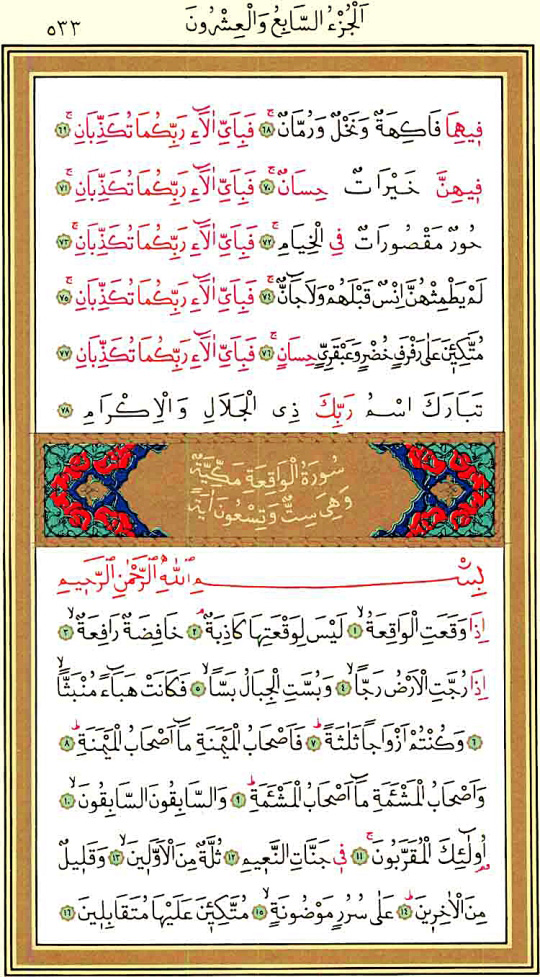 اَلْجُزْءُ السَّابِعُ وَالْعِشْرُونَ ٥٣٣
فِيهَا فَاكِهَةٌ وَنَخْلٌ وَرُمَّانٌۚ ﴿٦٨﴾ فَبِاَيِّ اٰلَٓاءِ رَبِّكُمَا تُكَذِّبَانِۚ ﴿٦٩﴾
فِيهِنَّ خَيْرَاتٌ حِسَانٌۚ ﴿٧٠﴾ فَبِاَيِّ اٰلَٓاءِ رَبِّكُمَا تُكَذِّبَانِۚ ﴿٧١﴾
حُورٌ مَقْصُورَاتٌ فِي الْخِيَامِۚ ﴿٧٢﴾ فَبِاَيِّ اٰلَٓاءِ رَبِّكُمَا تُكَذِّبَانِۚ ﴿٧٣﴾
لَمْ يَطْمِثْهُنَّ اِنْسٌ قَبْلَهُمْ وَلَا جَٓانٌّۚ ﴿٧٤﴾ فَبِاَيِّ اٰلَٓاءِ رَبِّكُمَا تُكَذِّبَانِۚ ﴿٧٥﴾
مُتَّكِـِٔينَ عَلٰى رَفْرَفٍ خُضْرٍ وَعَبْقَرِيٍّ حِسَانٍۚ ﴿٧٦﴾ فَبِاَيِّ اٰلَٓاءِ رَبِّكُمَا تُكَذِّبَانِ ﴿٧٧﴾
تَبَارَكَ اسْمُ رَبِّكَ ذِي الْجَلَالِ وَالْاِكْرَامِ ﴿٧٨﴾
سُورَةُ الْوَاقِعَةِ مَكِّيَّةٌ
وَهِيَ سِتٌّ وَتِسْعُونَ اٰيَةً
بِسْمِ اللّٰهِ الرَّحْمٰنِ الرَّحِيمِ
اِذَا وَقَعَتِ الْوَاقِعَةُۙ ﴿١﴾ لَيْسَ لِوَقْعَتِهَا كَاذِبَةٌۢ ﴿٢﴾ خَافِضَةٌ رَافِعَةٌۙ ﴿٣﴾
اِذَا رُجَّتِ الْاَرْضُ رَجًّاۙ ﴿٤﴾ وَبُسَّتِ الْجِبَالُ بَسًّاۙ ﴿٥﴾ فَكَانَتْ هَبَٓاءً مُنْبَثًّاۙ
﴿٦﴾ وَكُنْتُمْ اَزْوَاجًا ثَلٰثَةًۜ ﴿٧﴾ فَاَصْحَابُ الْمَيْمَنَةِ مَٓا اَصْحَابُ الْمَيْمَنَةِۜ ﴿٨﴾
وَاَصْحَابُ الْمَشْـَٔمَةِ مَٓا اَصْحَابُ الْمَشْـَٔمَةِۜ ﴿٩﴾ وَالسَّابِقُونَ السَّابِقُونَۙ ﴿١٠﴾
اُو۬لٰٓئِكَ الْمُقَرَّبُونَۚ ﴿١١﴾ فِي جَنَّاتِ النَّعِيمِ ﴿١٢﴾ ثُلَّةٌ مِنَ الْاَوَّلِينَۙ ﴿١٣﴾ وَقَلِيلٌ
مِنَ الْاٰخِرِينَۜ ﴿١٤﴾ عَلٰى سُرُرٍ مَوْضُونَةٍۙ ﴿١٥﴾ مُتَّكِـِٔينَ عَلَيْهَا مُتَقَابِلِينَ ﴿١٦﴾